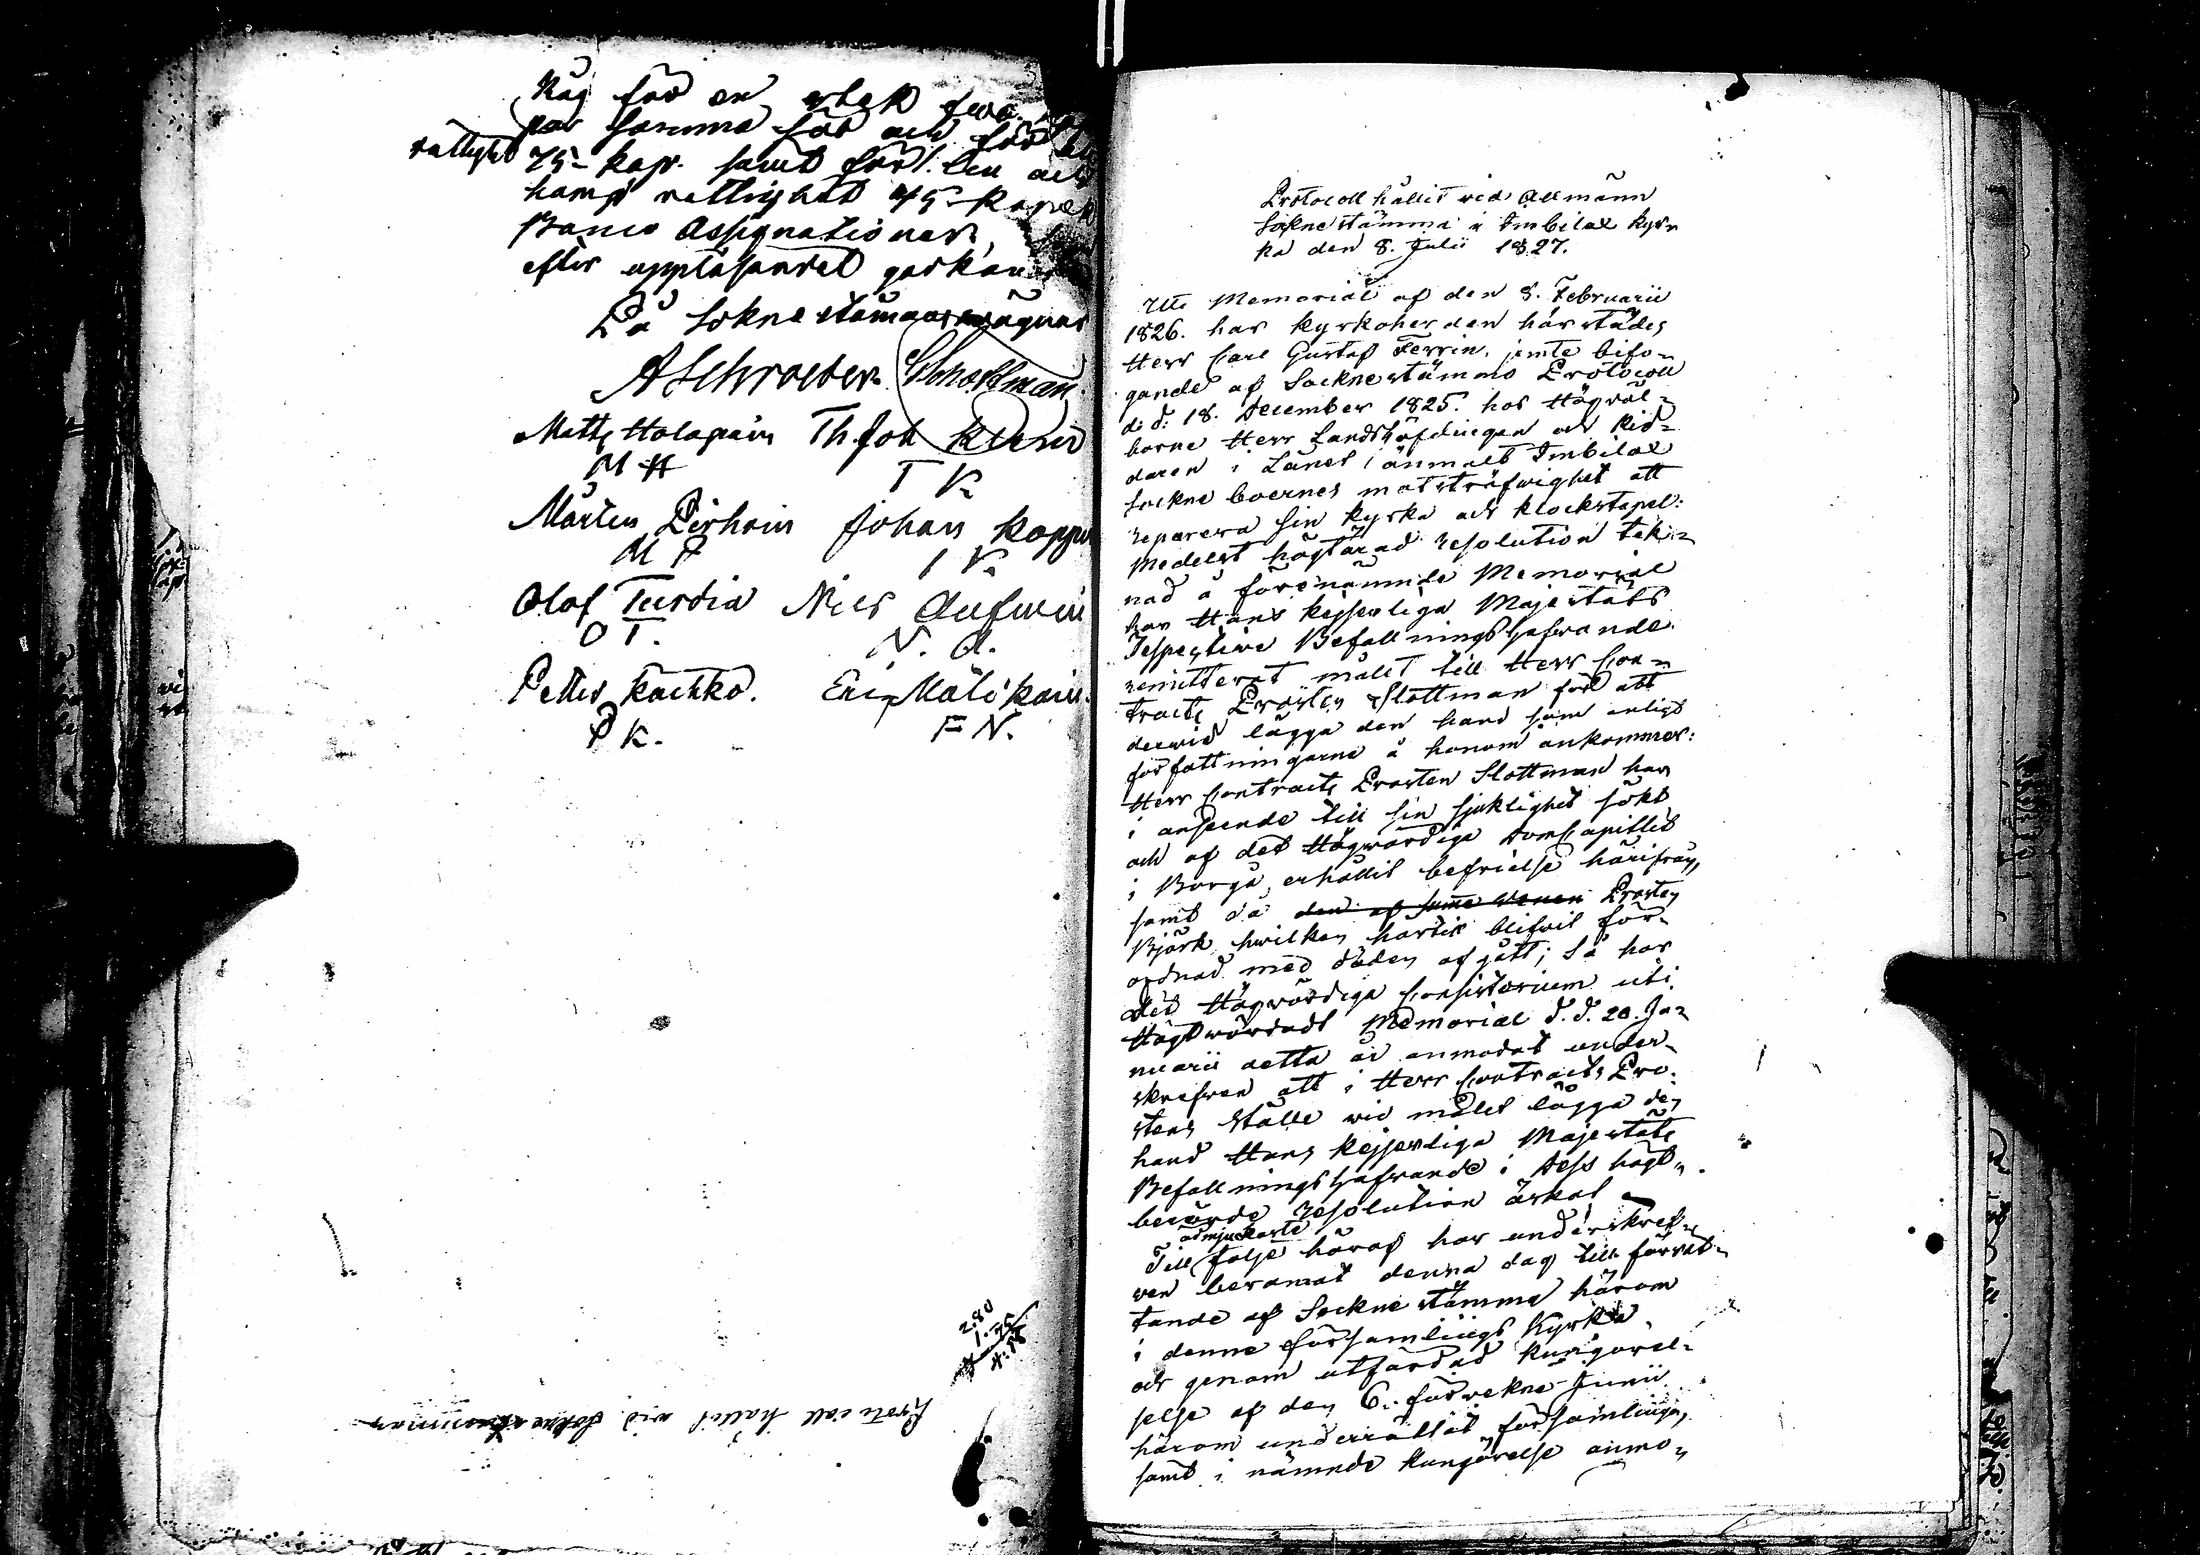 Råg för en
par samma för och för
rättighet 75 - kop. samt för l. lin och
hamp rettighet 45 - Kopek
Banco Assignationer,
efter uppläsandet godkändt
På Sokne stämmans wägnar
ASchroeder. Scholman.
Matts Holopain Th. Joh
M H T K
Mårten Pirhoin Johan Koppo
M P I K
Olof Turdia Nils Aufwin
O T. N. A.
Petter Kachko. Eric Näli kain.
P K. E N.
2.80
1.75
4.55
Protocoll hållit wid Sokne stämman
Protocoll hållit wid Allmänn
Sokne stämma i Imbilax kyr-
ka den 8. Julii 1827.
Uti Memorial af den 8. Februarii
1826. har kyrkoherden härstädes
Herr Carl Gustaf Ferrin, jemte bifo-
gande af Sockne stämmo Protocoll
d. d. 18. December 1825. hos Högwäl-
borne Herr Landshöfdingen och Rid-
daren i Länet anmält Imbilax
sockne boernes motsträfwighet att
reparera sin kyrka och klockstapel:
Medelst högtärad resolution tek-
nad å förenämnde Memorial
har Hans Kejserliga Majestäts
Respective Befallningshafwande
remitterat målet till Herr Con-
tracts Prosten Slottman för att
derwid lägga den hand som enligt
författningarna å honom ankommer:
Herr Contracts Prosten Slottman har
i anseende till sin sjuklighet sökt
och af det Högwördiga DomCapitlet
i Borgå erhållit befrielse härifrån,
samt då den af Prosten
Björk hwilken härtil blifwit för-
ordnad med döden afgått; Så har
det Högwördiga Consistorium uti
Högtwördadt Memorial d. d. 20. Ja-
nuarii detta år anmodat under-
skrefwen att i Herr Contracts Pro-
stens ställe wid målet lägga den
hand Hans Kejserliga Majestäts
Befallningshafwande i Dess högt-
berörde resolution äskat
ödmjukaste
Till följe häraf har underskref-
wen beramat denna dag till förrät-
tande af Sockne stämma härom
i denne församlings Kyrka
och genom utfärdad kungörel-
selse af den 6. förwekne Junii
härom underrättat församlingen,
samt i nämnde kungörelse anmo-